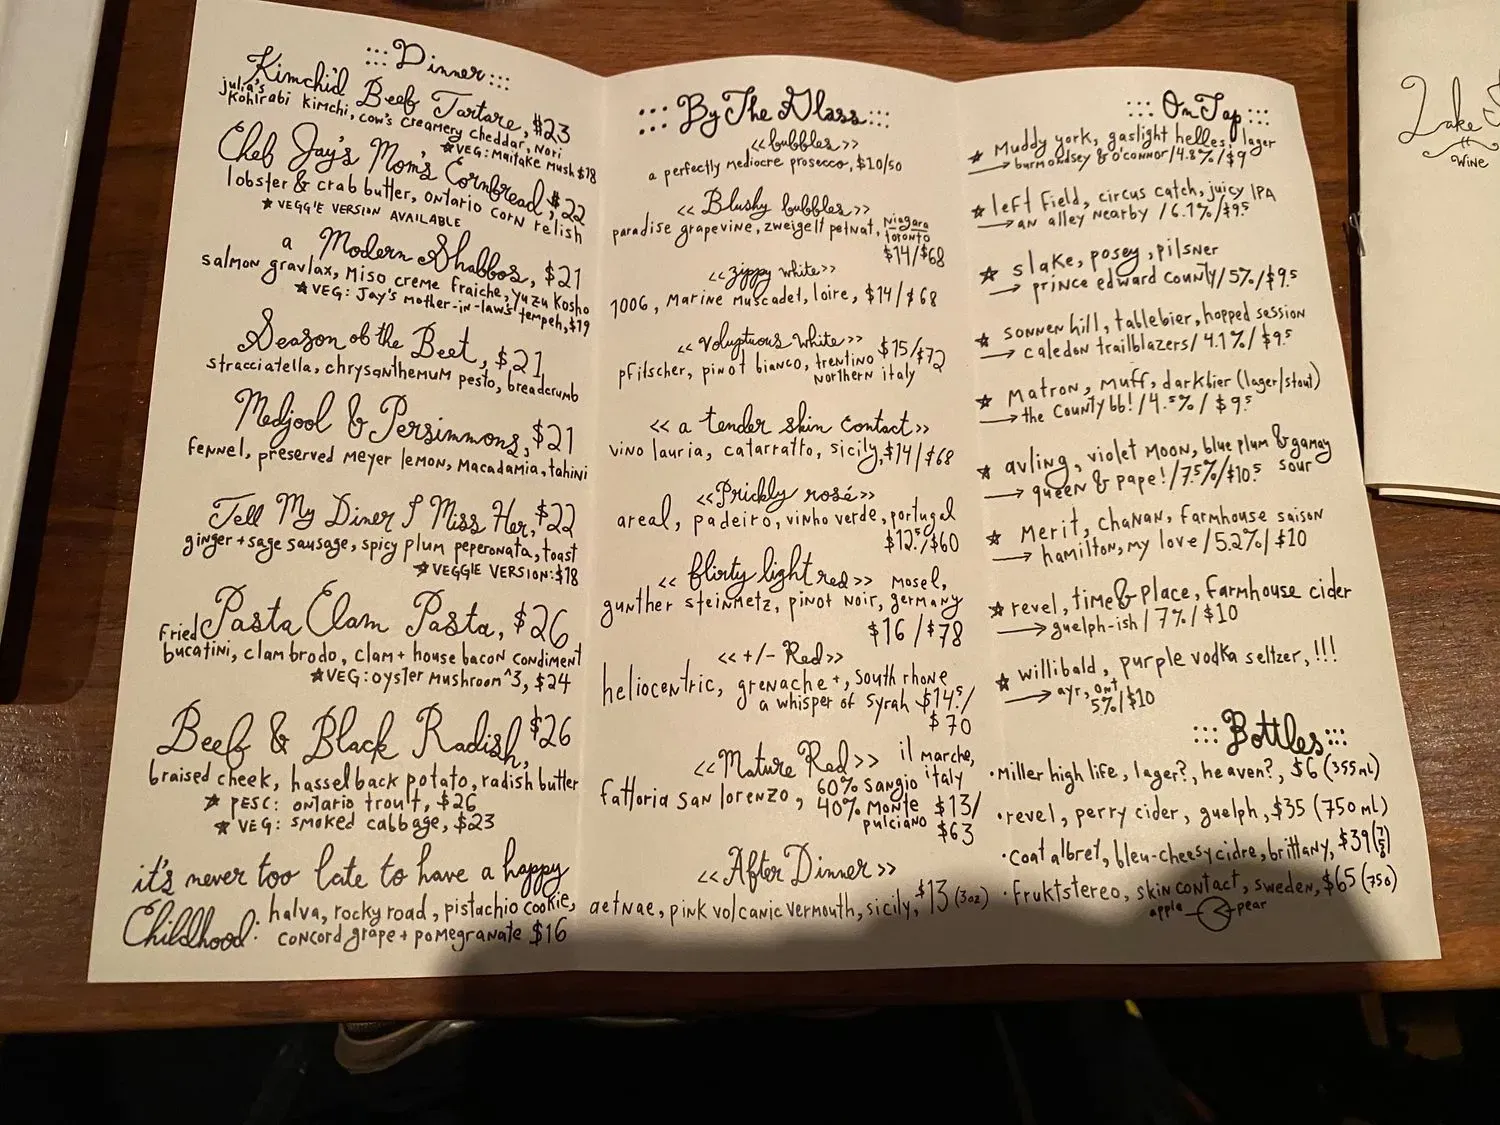 :::Dinner:::
Kimchi'd Beef Tartare, $23
julia's kohlrabi kimchi, cow's creamery cheddar, nori
★VEG: Maitake Mush $18
Chef Jay's Mom's Cornbread, $22
lobster & crab butter, ontario corn relish
★ VEGGIE VERSION AVAILABLE
a Modern Shabbos, $21
salmon gravlax, miso creme fraiche, yuzu kosho
★VEG: Jay's mother-in-law's tempeh, $19
Season of the Beet, $21
stracciatella, chrysanthemum pesto, breadcrumb
Medjool & Persimmons, $21
fennel, preserved meyer lemon, macadamia, tahini
Tell My Diner I Miss Her, $22
ginger + sage sausage, spicy plum peperonata, toast
★VEGGIE VERSION: $18
Fried Pasta Clam Pasta, $26
bucatini, clam brodo, clam + house bacon condiment
★VEG: oyster mushroom^3, $24
Beef & Black Radish, $26
braised cheek, hasselback potato, radish butter
★ PESC: ontario trout, $26
★ VEG: smoked cabbage, $23
it's never too late to have a happy
Childhood: halva, rocky road, pistachio cookie,
concord grape + pomegranate $16
:::By The Glass:::
<<bubbles>>
a perfectly mediocre prosecco, $10/50
<<Blushy bubbles>>
paradise grapevine, zweigelt petnat, Niagara Toronto
$14/$68
<<zippy white>>
1006, Marine Muscadet, loire, $14/$68
<<Voluptuous White>>
pfitscher, pinot bianco, trentino $15/$72
Northern italy
<<a tender skin contact>>
vino lauria, catarratto, sicily, $14/$68
<<Prickly rosé>>
areal, padeiro, vinho verde, portugal
$12.5/$60
<<flirty light red>> Mosel,
gunther steinmetz, pinot noir, germany
$16/$78
<<+/- Red>>
heliocentric, grenache+, south rhone
a whisper of syrah $14.5/
$70
<<Mature Red>> il marche,
fattoria san lorenzo, 60% sangio italy
40% monte $13/
pulciano $63
<<After Dinner>>
aetnae, pink volcanic vermouth, sicily, $13 (3oz)
:::On Tap:::
★ Muddy york, gaslight helles, lager
→ burmondsey & o'connor/4.8%/$9
★ left field, circus catch, juicy IPA
→ an alley nearby /6.1%/$9.5
★ slake, posey, pilsner
→ prince edward county/5%/$9.5
★ sonnen hill, tablebier, hopped session
→ caledon trailblazers/4.1%/$9.5
★ Matron, Muff, darkbier (lager/stout)
→ the County bb!/4.5%/$9.5
★ avling, violet moon, blue plum & gamay
→ queen & pape!/7.5%/$10.5 sour
★ Merit, chaNaN, farmhouse saison
→ hamilton, my love/5.2%/$10
★ revel, time & place, farmhouse cider
→ guelph-ish/7%/$10
★ willibald, purple vodka seltzer, !!!
→ ayr, ont
5%/$10
:::Bottles:::
•Miller high life, lager?, heaven?, $6 (355mL)
•revel, perry cider, guelph, $35 (750mL)
•Coat albret, bleu-cheesy cidre, brittany, $39(750)
•Fruktstereo, skin contact, sweden, $65 (750)
apple pear
Lake
WINE